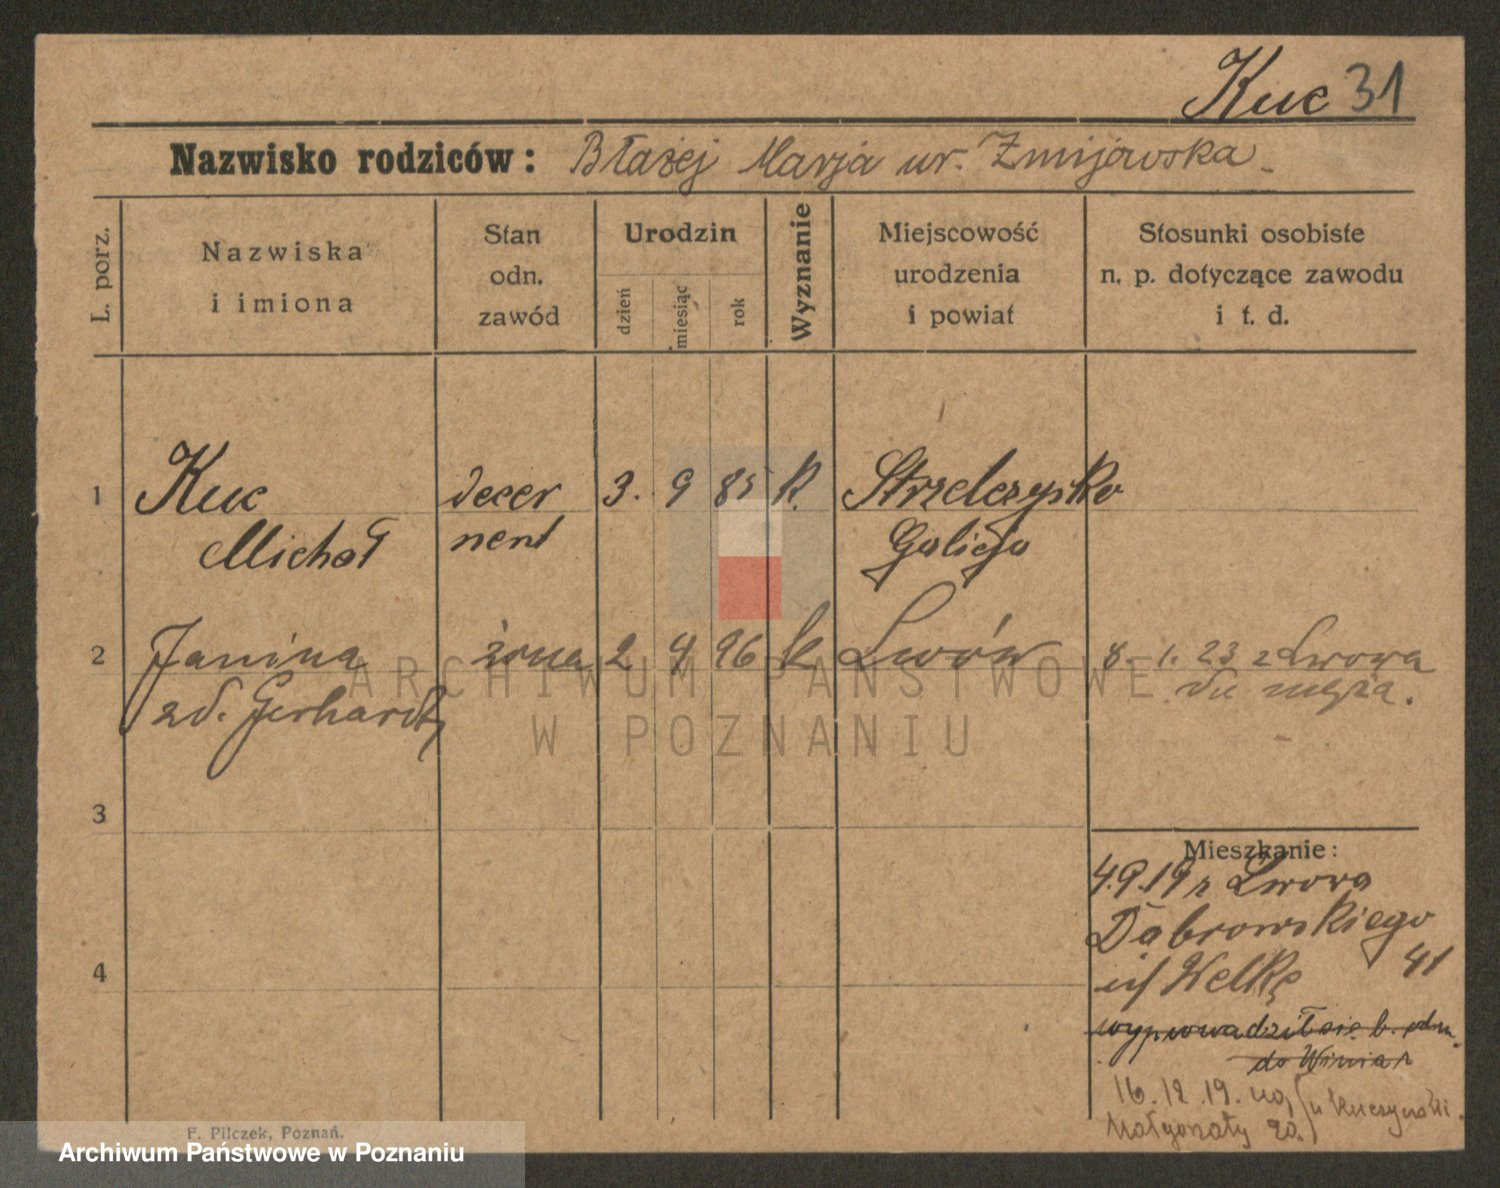 Kuc 31
Nazwisko rodziców: Błażej Marja ur. Żmijowska
L. porz.
Nazwiska
i imiona
Stan
odn.
zawód
Urodzin
dzień
miesiąc
rok
Wyznanie
Miejscowość
urodzenia
i powiat
Stosunki osobiste
n. p. dotyczące zawodu
i t. d.
1 Kuc decer 3. 9 85 k. Strzelczysko
Michał nent Galicja
2 Janina żona 2 4 96 k Lwów 8. 1. 23 z Lwowa
zd. Gerhardt do męża.
ARCHIWUM PAŃSTWOWE
W POZNANIU
3
Mieszkanie:
4.9.19 z Lwowa
Dąbrowskiego
41
4
wyprowadził się b. odm.
do Winiar
16.12.19. na
Małgorzaty 20. u Kuczyński
F. Pilczek, Poznań.
Archiwum Państwowe w Poznaniu